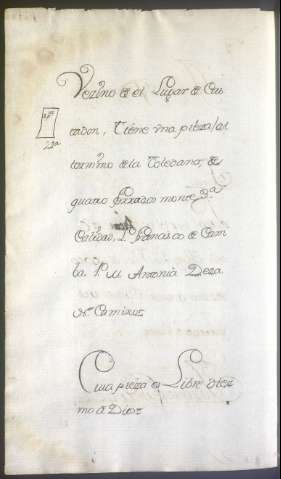 Vezino de el Lugar de Cus
cadon, Tiene vna pieza al
termino de la Toledana, de
quatro
monte, 3ª
Calidad, L. francisco de Cam
ba P. M Antonia Deza
N. Caminus
Cuia pieza es Libre diez
mo a Dios